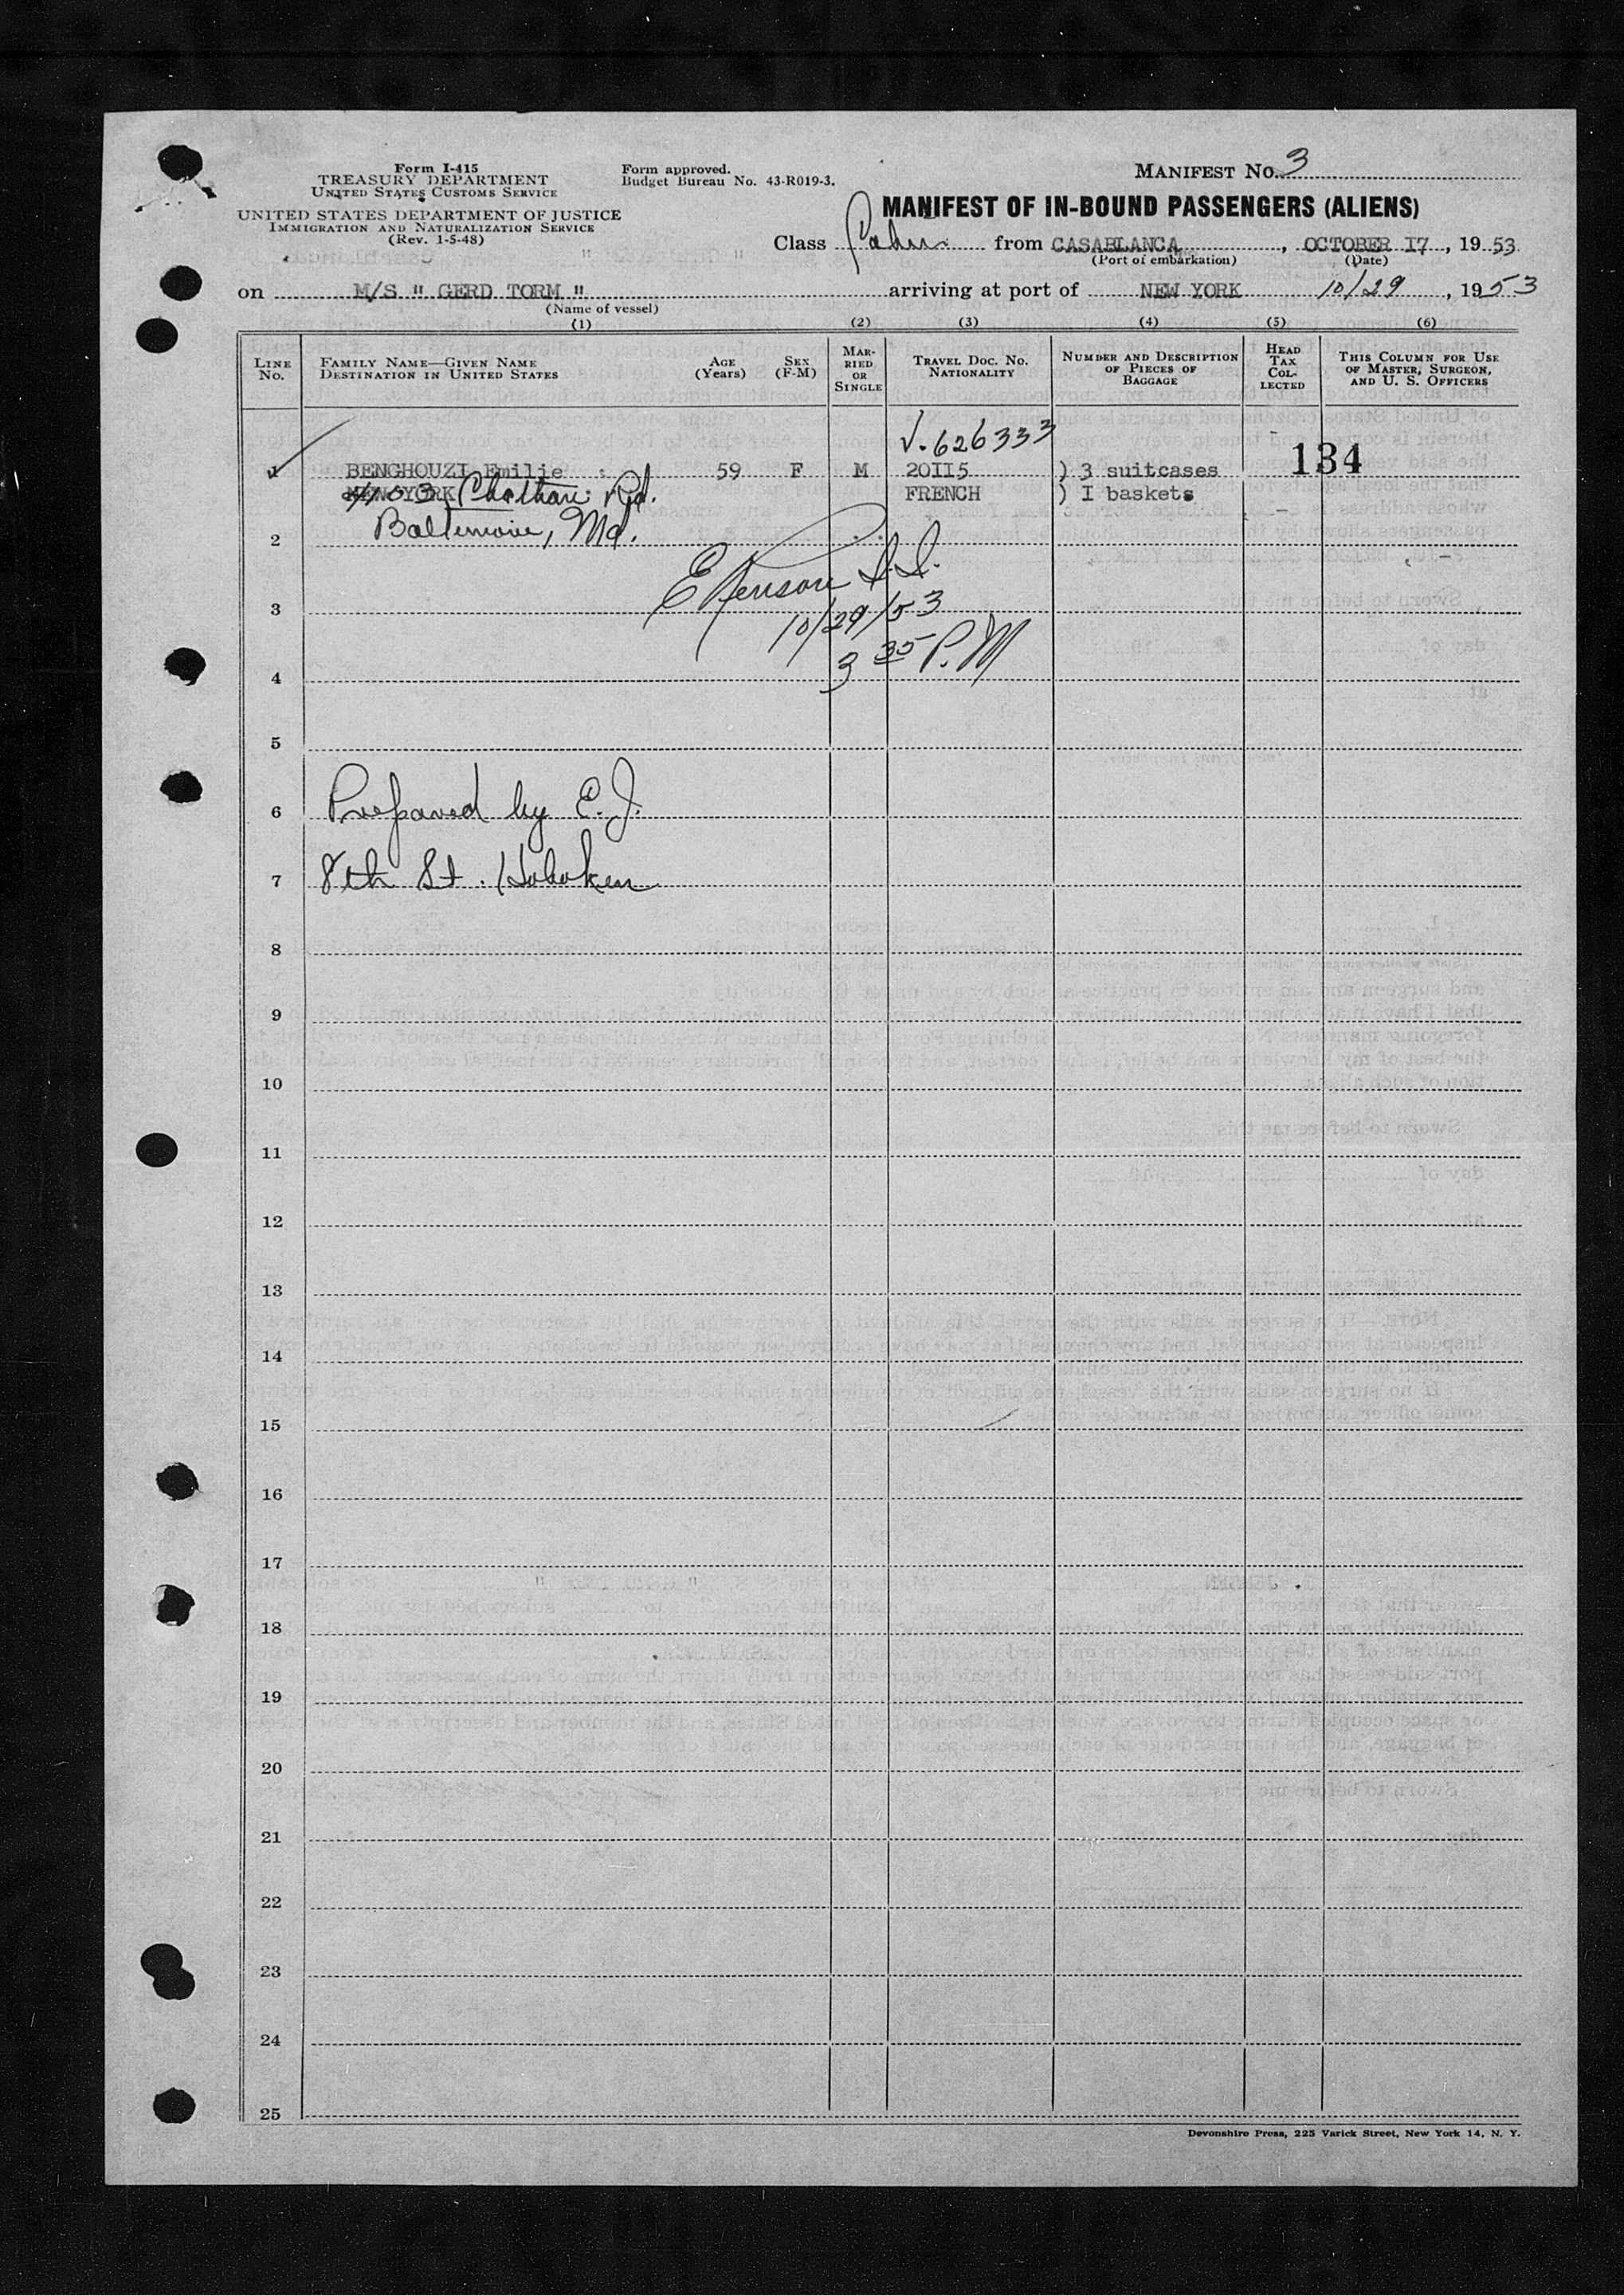 Form I-415
TREASURY DEPARTMENT
UNITED STATES CUSTOMS SERVICE
UNITED STATES DEPARTMENT OF JUSTICE
IMMIGRATION AND NATURALIZATION SERVICE
(Rev. 1-5-48)
Form approved.
Budget Bureau No. 43-R019-3.
MANIFEST No. 3
MANIFEST OF IN-BOUND PASSENGERS (ALIENS)
Class from CASABLANCA, OCTOBER I7, 1953
(Port of embarkation) (Date)
on M/S " GERD TORM " arriving at port of NEW YORK 10/29, 1953
(Name of vessel)
(1) (2) (3) (4) (5) (6)
LINE No.
FAMILY NAME—GIVEN NAME
DESTINATION IN UNITED STATES
AGE (Years)
SEX (F-M)
MARRIED OR SINGLE
TRAVEL DOC. NO. NATIONALITY
NUMBER AND DESCRIPTION OF PIECES OF BAGGAGE
HEAD TAX COLLECTED
THIS COLUMN FOR USE OF MASTER, SURGEON, AND U. S. OFFICERS
V-626333
1 BENGHOUZI Emilie 59 F M 20II5 ) 3 suitcases 134
NEW YORK Rd. FRENCH ) I baskets
Baltimore, Md.
2
10/29/53
3
3 35 P.M
4
5
6 Prepared by E.J.
7 8th St. Hoboken
8
9
10
11
12
13
14
15
16
17
18
19
20
21
22
23
24
25
Devonshire Press, 225 Varick Street, New York 14, N. Y.